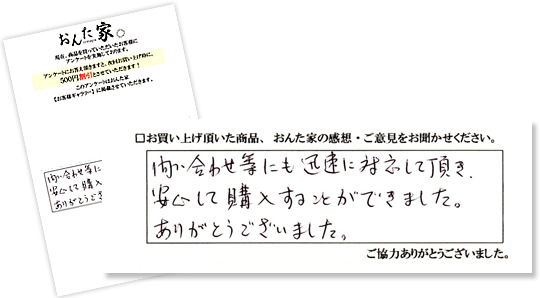 おんた家
現在、商品を買っていただいたお客様に
アンケートを実施しております。
アンケートにお答え頂きますと、次回お買い上げ時に、
500円割引とさせていただきます!
このアンケートはおんた家
【お客様ギャラリー】に掲載させていただきます。
問い合わせ等に
安心して購入
ありがとうござ
□お買い上げ頂いた商品、おんた家の感想・ご意見をお聞かせください。
問い合わせ等にも迅速に対応して頂き、
安心して購入することができました。
ありがとうございました。
ご協力ありがとうございました。